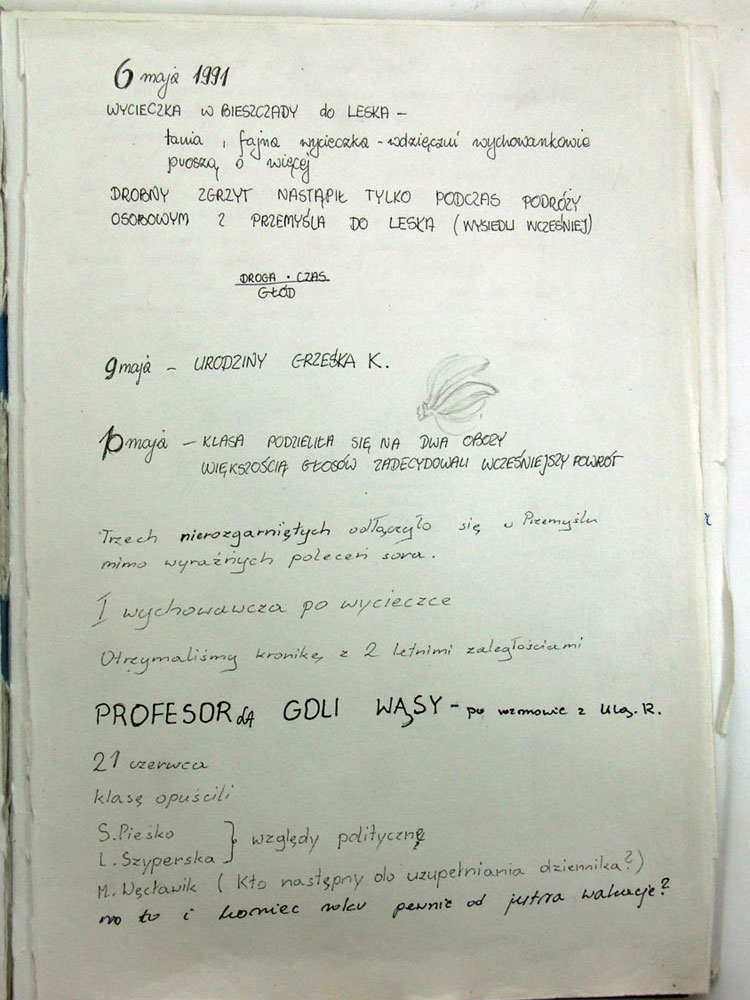 6 maja 1991
WYCIECZKA W BIESZCZADY do LESKA –
tania, fajna wycieczka - wdzięczni wychowankowie
proszą o więcej
DROBNY ZGRZYT NASTĄPIŁ TYLKO PODCZAS PODRÓŻY
OSOBOWYM Z PRZEMYŚLA DO LESKA (WYSIEDLI WCZEŚNIEJ)
DROGA · CZAS
GŁÓD
9 maja – URODZINY GRZEŚKA K.
10 maja – KLASA PODZIELIŁA SIĘ NA DWA OBOZY
WIĘKSZOŚCIĄ GŁOSÓW ZADECYDOWALI WCZEŚNIEJSZY POWRÓT
Trzech nierozgarniętych odłączyło się w Przemyślu
mimo wyraźnych poleceń sora.
I wychowawcza po wycieczce
Otrzymaliśmy kronikę z 2 letnimi zaległościami
PROFESOR GOLI WĄSY - po rozmowie z R.
21 czerwca
klasę opuścili
S. Pieśko
L. Szyperska } względy polityczne
M. Węcławik (Kto następny do uzupełniania dziennika?)
no to i koniec roku pewnie od jutra wakacje?